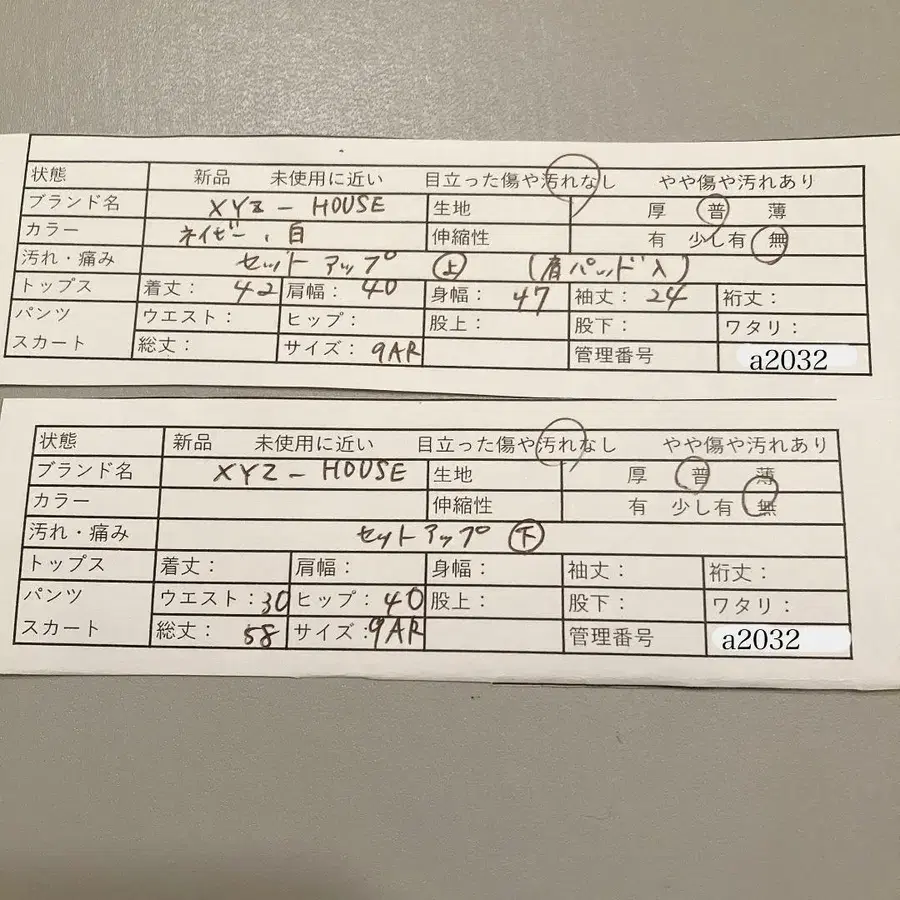 状態 新品 未使用に近い 目立った傷や汚れなし やや傷や汚れあり
ブランド名 XYZ - HOUSE 生地 厚 普 薄
カラー ネイビー、白 伸縮性 有 少し有 無
汚れ・痛み セットアップ 上 (肩パッド入)
トップス 着丈: 42 肩幅: 40 身幅: 47 袖丈: 24 裄丈:
パンツ ウエスト: ヒップ: 股上: 股下: ワタリ:
スカート 総丈: サイズ: 9AR 管理番号 a2032
状態 新品 未使用に近い 目立った傷や汚れなし やや傷や汚れあり
ブランド名 XYZ - HOUSE 生地 厚 普 薄
カラー 伸縮性 有 少し有 無
汚れ・痛み セットアップ 下
トップス 着丈: 肩幅: 身幅: 袖丈: 裄丈:
パンツ ウエスト: 30 ヒップ: 40 股上: 股下: ワタリ:
スカート 総丈: 58 サイズ: 9AR 管理番号 a2032